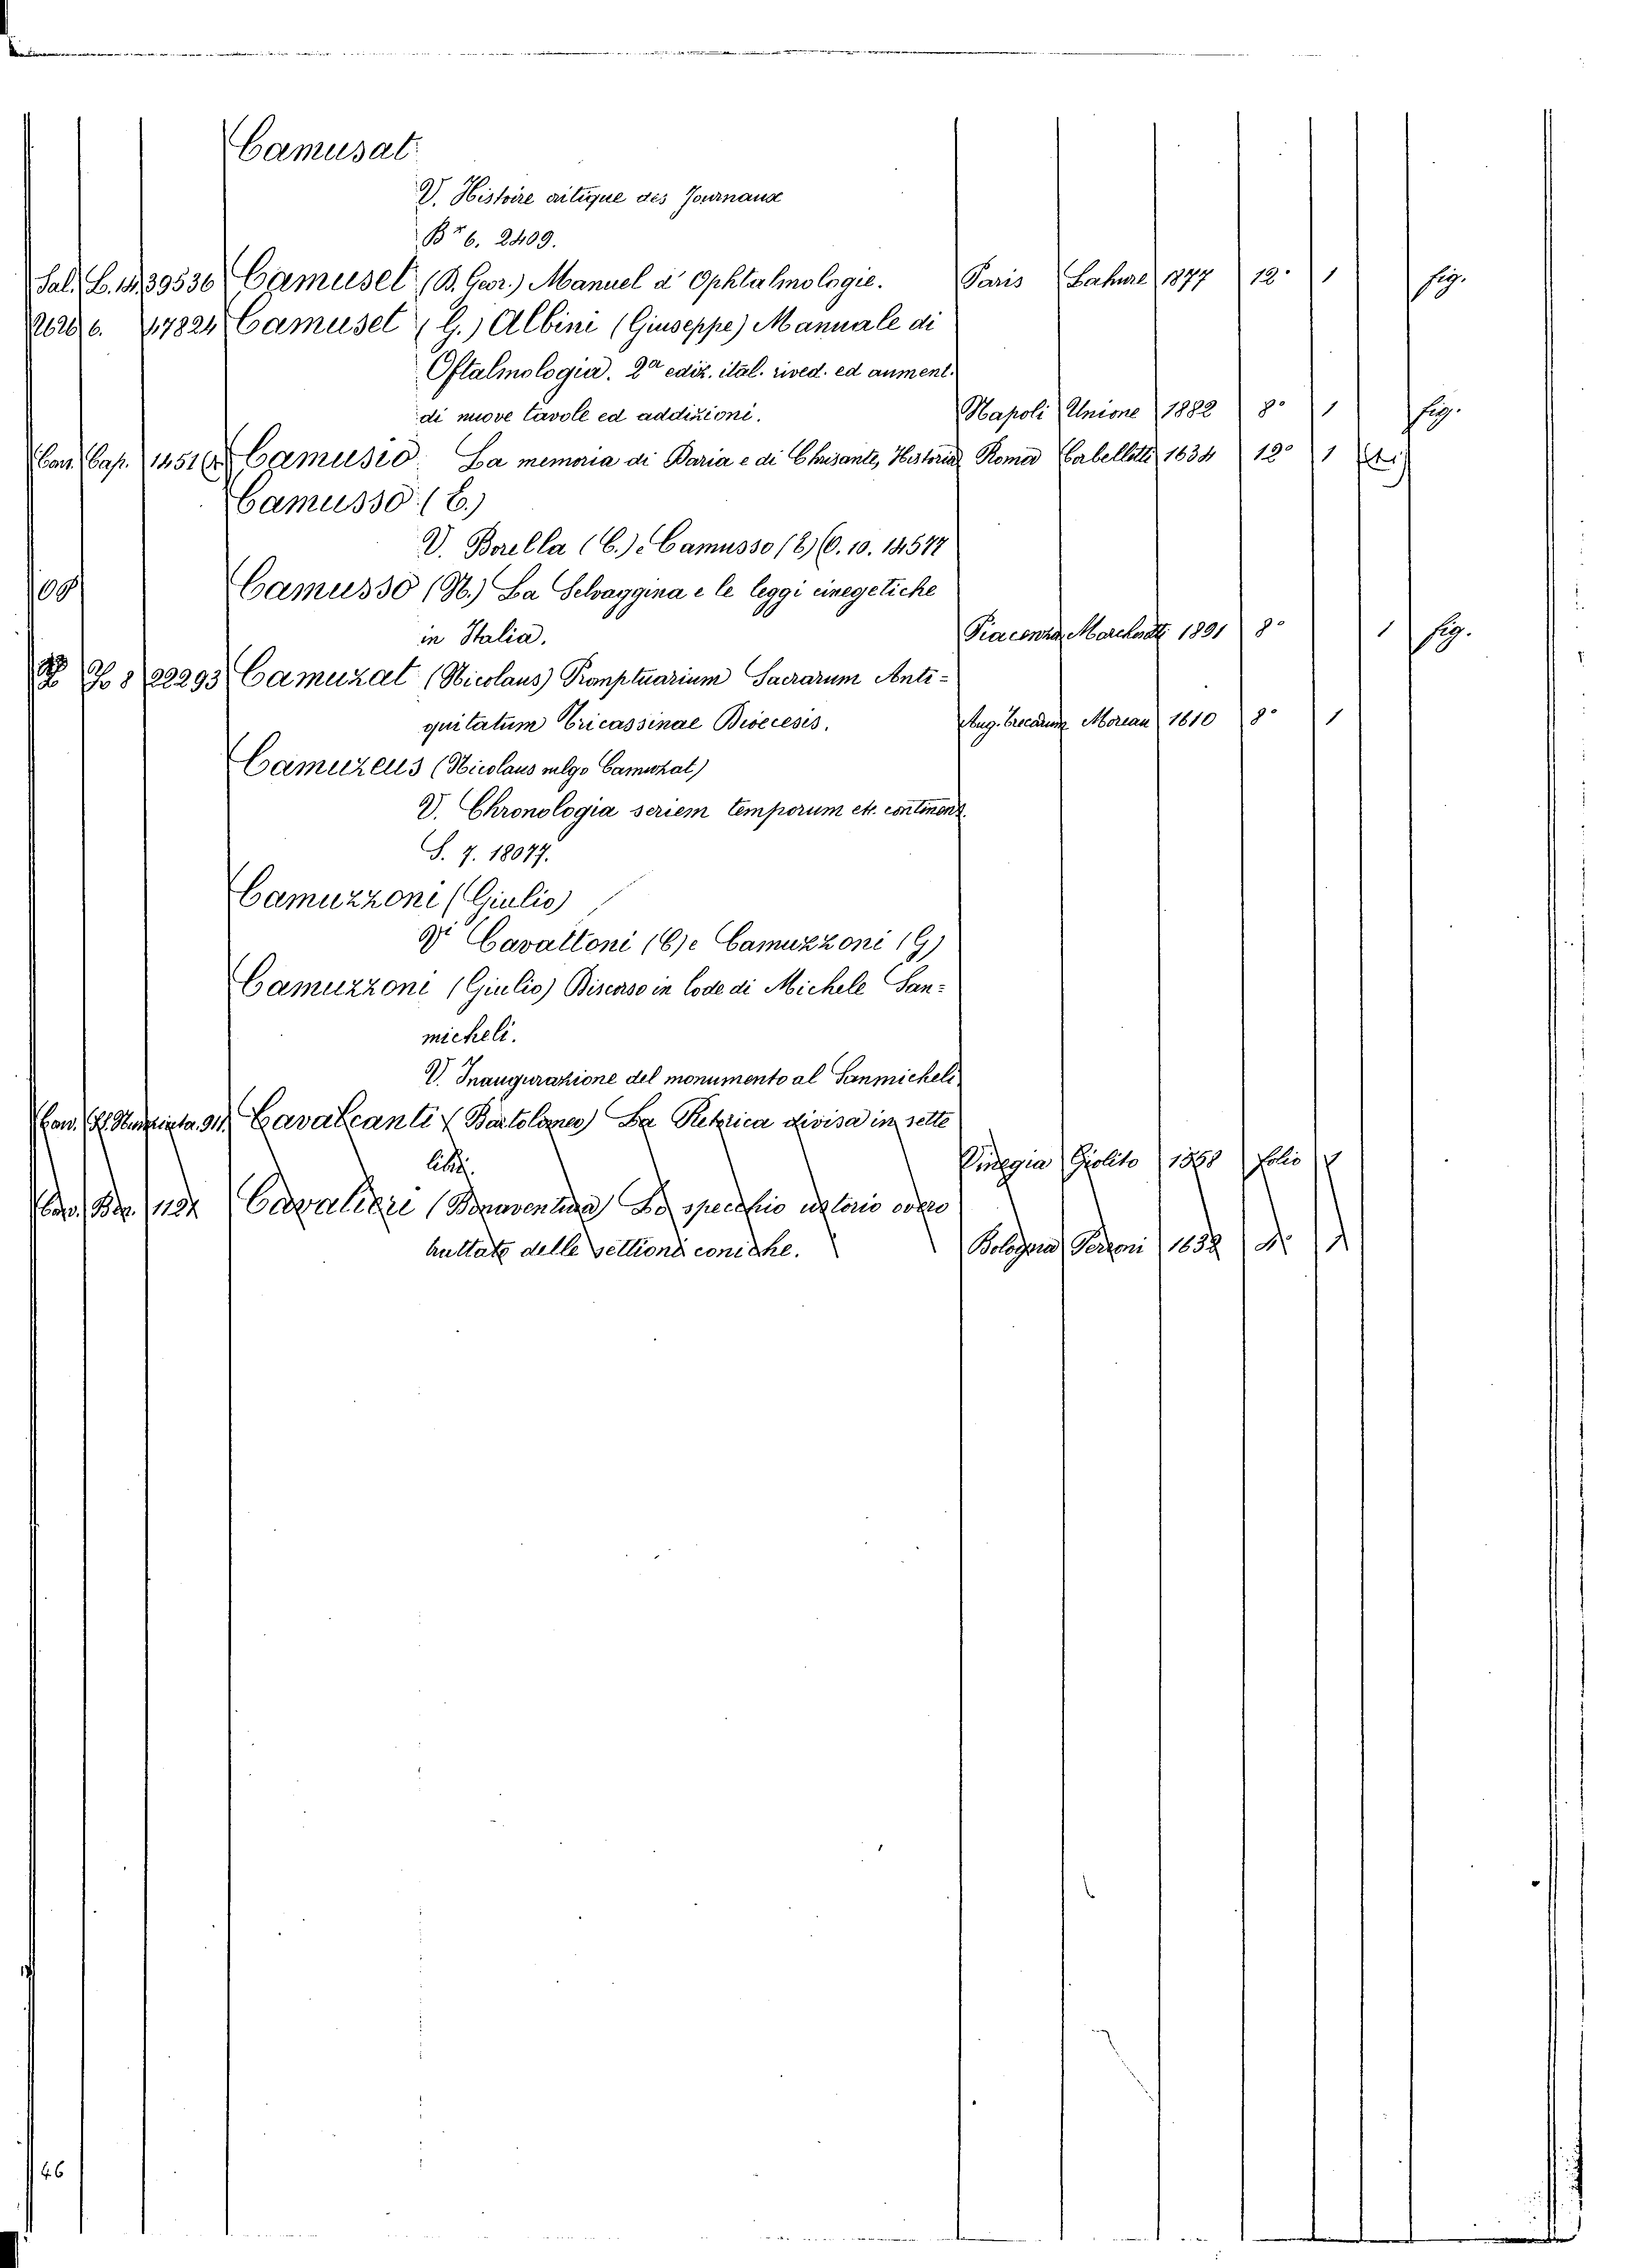 Camusat
V. Histoire critique des Journaux
Br 6. 2409.
Sal. B. 14. 39536 Camuset (D. Geor.) Manuel d'Ophtalmologie. Paris Lahure 1877 12° 1 fig.
6. 47824 Camuset (G.) Albini (Giuseppe) Manuale di
Oftalmologia. 2a ediz. ital. rived. ed aument.
di nuove tavole ed addizioni. Napoli Unione 1882 8° 1 fig.
Can. Cap. 1451 Camusio La memoria di Daria e di Chrisante, Historia Roma Corbelletti 1634 12° 1
Camusso (C.)
V. Borella (C.) e Camusso (C) C. 10. 14577
109 Camusso (N.) La Selvaggina e le leggi cinegetiche
in Italia. Piacenza Marchesotti 1891 8° 1 fig.
8 22293 Camuzat (Nicolaus) Promptuarium Sacrarum Anti-
quitatum Tricassinae Dioecesis. Aug. Trecarum Moreau 1610 8° 1
Camuzeus (Nicolaus vulgo Camuzat)
V. Chronologia seriem temporum etc. continens.
S. 7. 18077.
Camuzzoni (Giulio)
Vi Cavattoni (C) e Camuzzoni (G)
Camuzzoni (Giulio) Discorso in lode di Michele San-
micheli.
V. Inaugurazione del monumento al Sanmicheli
Can. Nunziata. 911. Cavalcanti (Bartolomeo) La Retorica divisa in sette
libri. Vinegia Giolito 1558 folio 1
Can. Ber. 1124 Cavalieri (Bonaventura) Lo specchio ustorio overo
trattato delle settioni coniche. Bologna Ferroni 1632 4° 1
46